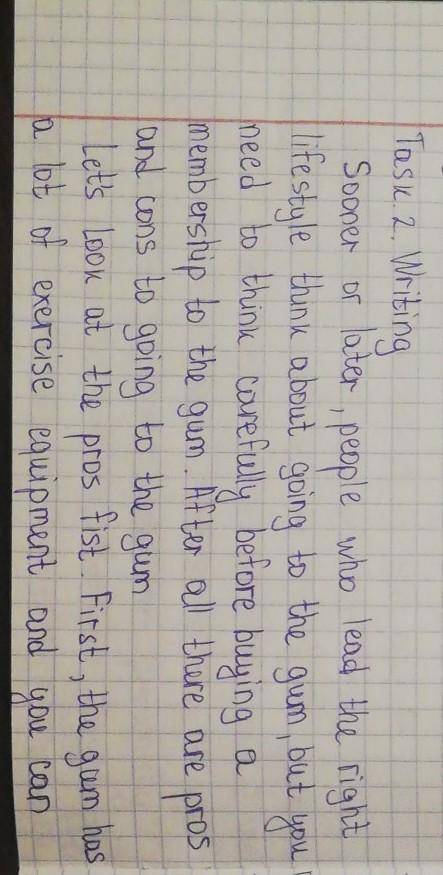 Task 2. Writing
Sooner or later, people who lead the right
lifestyle think about going to the gum, but you
need to think carefully before buying a
membership to the gum. After all there are pros
and cons to going to the gum
Let's look at the pros fist. First, the gum has
a lot of exercise equipment and you can